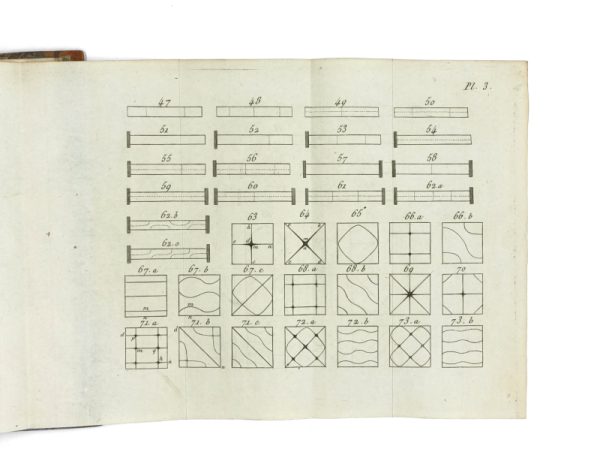 Pl. 3.
47 48 49 50
51 52 53 54
55 56 57 58
59 60 61 62.a
62.b 63 64 65 66.a 66.b
62.c
67.a 67.b 67.c 68.a 68.b 69 70
71.a 71.b 71.c 72.a 72.b 73.a 73.b